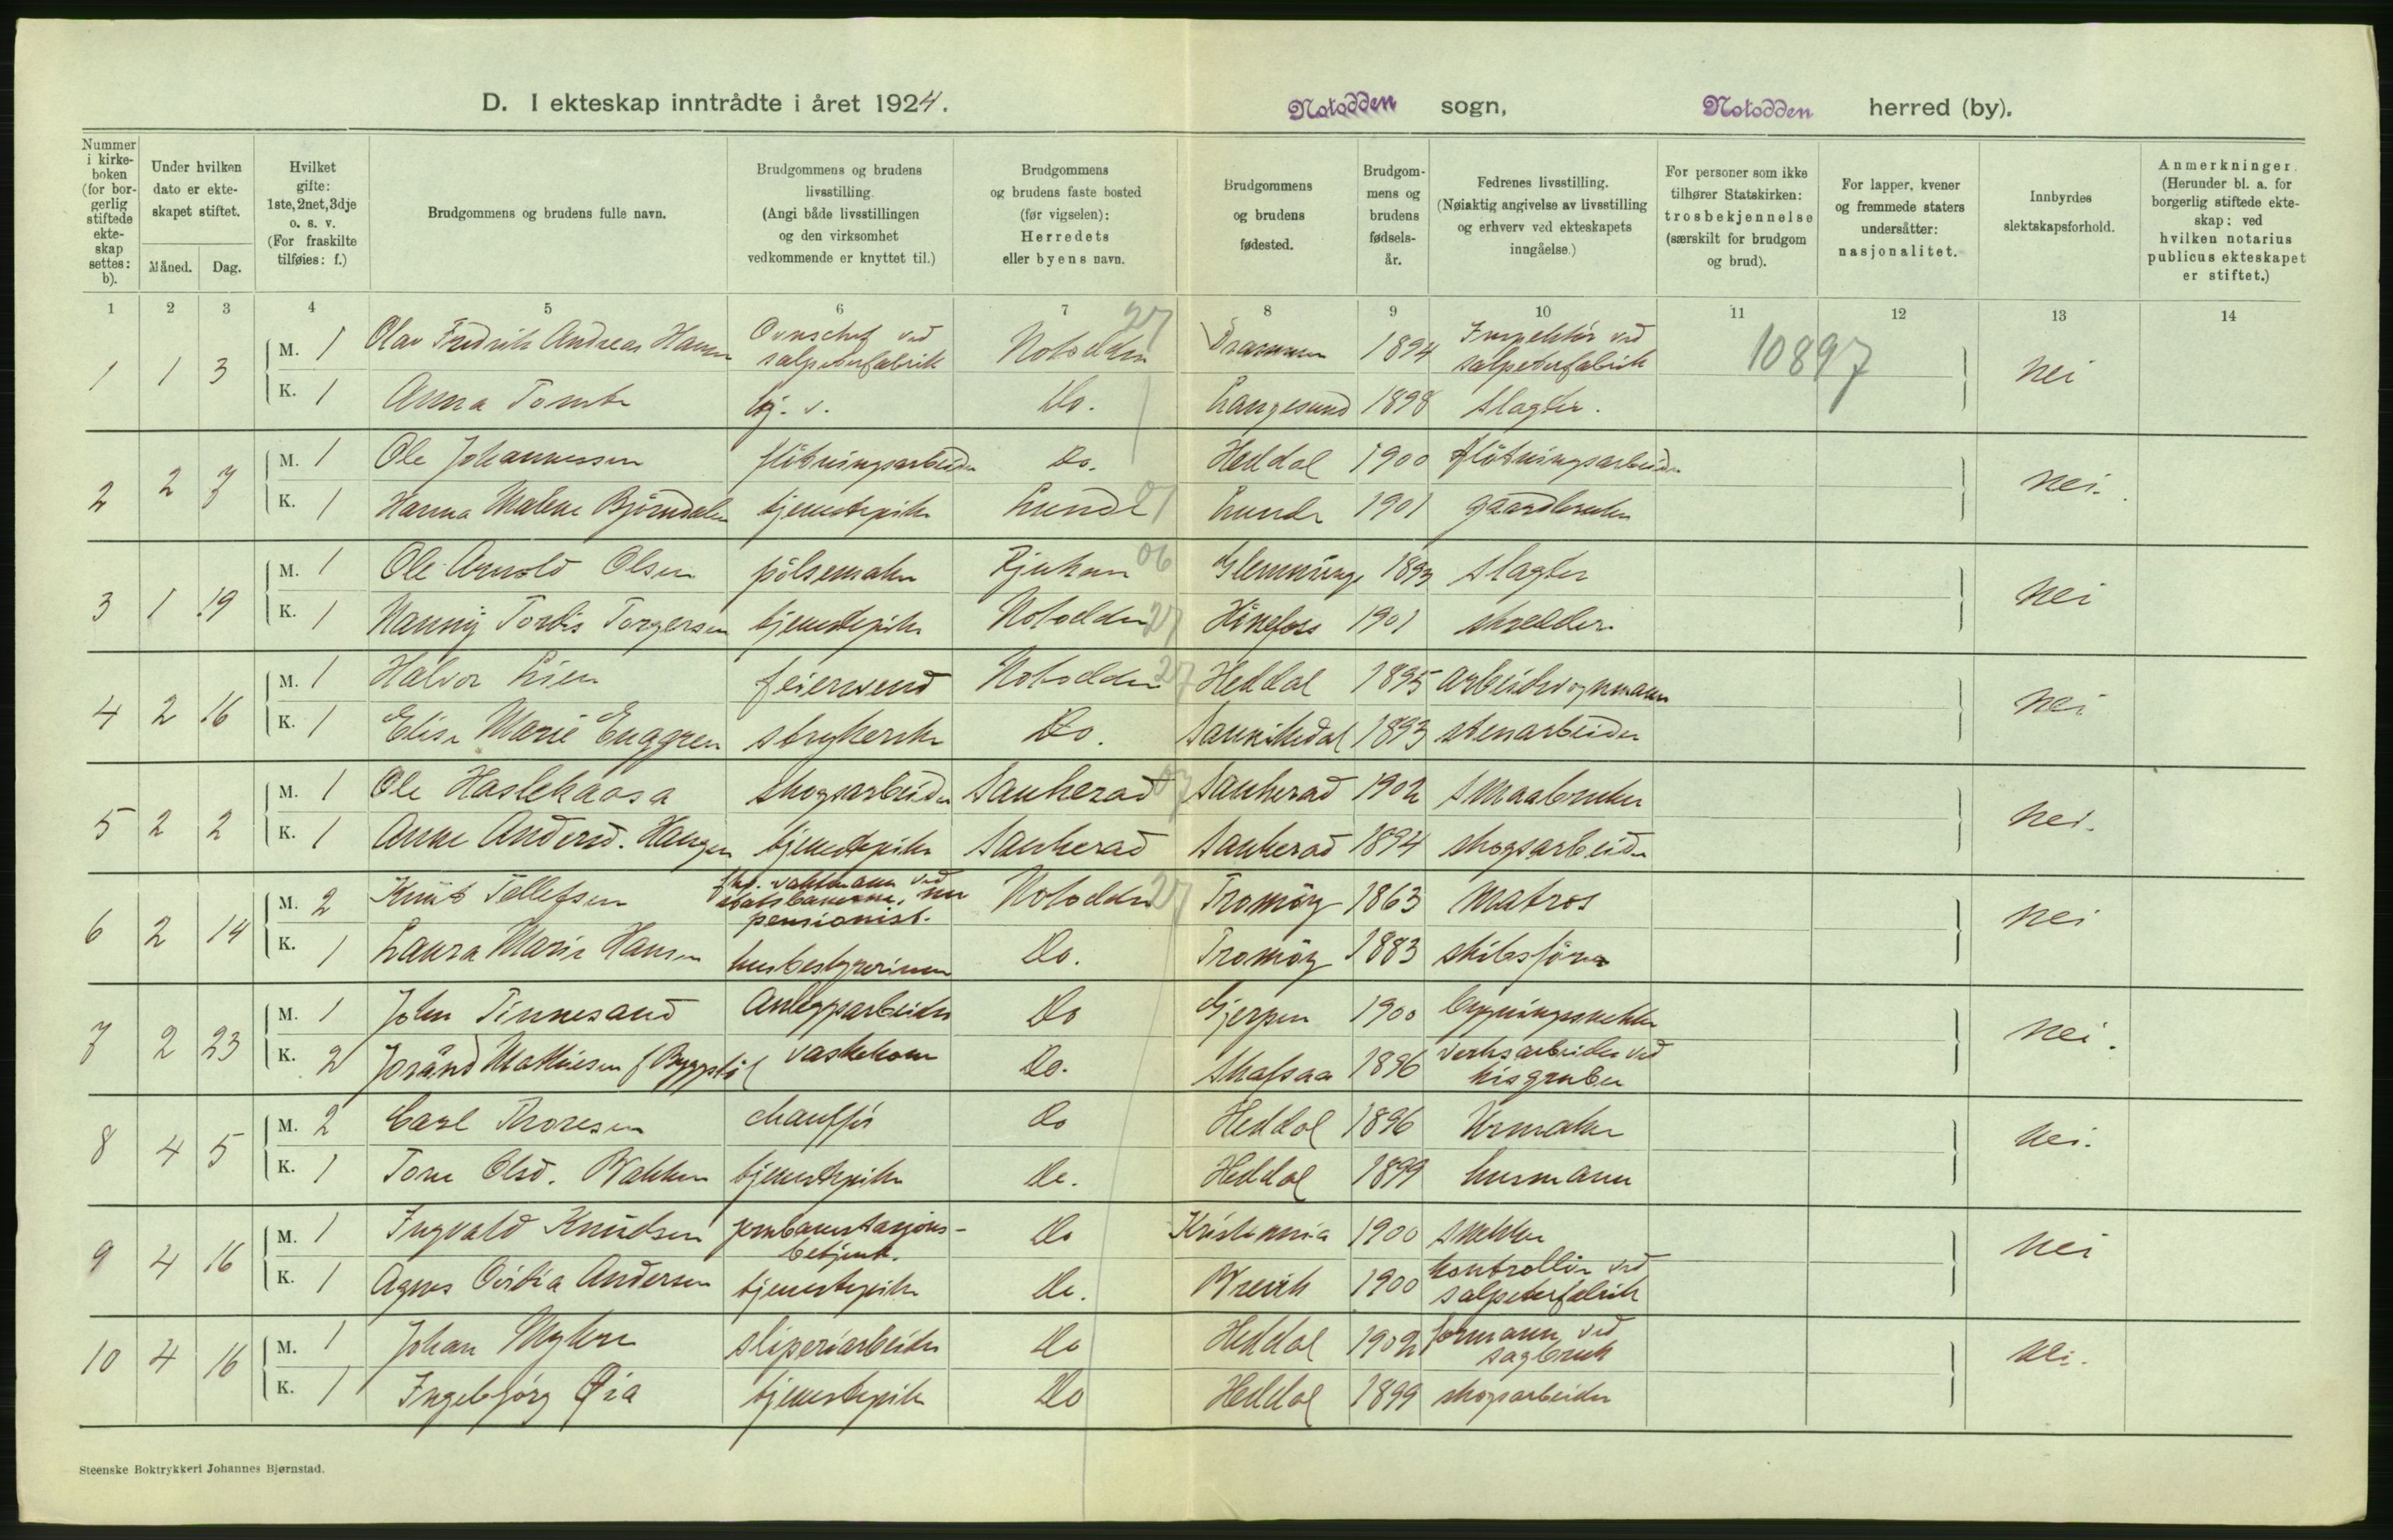 D. I ekteskap inntrådte i året 1924. Notodden sogn, Notodden herred (by).
Nummer i kirkeboken (for borgerlig stiftede ekteskap settes: b).
Under hvilken dato er ekteskapet stiftet.
Måned. Dag.
Hvilket gifte: 1ste, 2net, 3dje o. s. v. (For fraskilte tilføies: f.)
Brudgommens og brudens fulle navn.
Brudgommens og brudens livsstilling. (Angi både livsstillingen og den virksomhet vedkommende er knyttet til.)
Brudgommens og brudens faste bosted (før vigselen): Herredets eller byens navn.
Brudgommens og brudens fødested.
Brudgommens og brudens fødselsår.
Fedrenes livsstilling. (Nøiaktig angivelse av livsstilling og erhverv ved ekteskapets inngåelse.)
For personer som ikke tilhører Statskirken: trosbekjennelse (særskilt for brudgom og brud).
For lapper, kvener og fremmede staters undersåtter: nasjonalitet.
Innbyrdes slektskapsforhold.
Anmerkninger. (Herunder bl. a. for borgerlig stiftede ekteskap: ved hvilken notarius publicus ekteskapet er stiftet.)
1 2 3 4 5 6 7 8 9 10 11 12 13 14
1 1 3 M. 1 Olav Fredrik Andreas Hansen ved salpeterfabrik Notodden 27 Drammen 1894 Inspektör ved salpeterfabrik 10897 nei
K. 1 Anna Tomte Do. Langesund 1898 slagter.
2 2 7 M. 1 Ole Johannessen flötningsarbeider Do. Heddal 1900 flötningsarbeider nei.
K. 1 Hanna Malene Björndalen tjenestepike Lunde 27 Lunde 1901 gaardbruker
3 1 19 M. 1 Ole Arnold Olsen pölsemaker Rjukan 06 Glemminge 1893 slagter nei
K. 1 Nanny Tordis Torgersen tjenestepike Notodden 27 Hönefoss 1901 skredder
4 2 16 M. 1 Halvor Lien feiersvend Notodden 27 Heddal 1895 arbeidsvognmann nei
K. 1 Elise Marie Enggren strykerske Do. Sannikedal 1893 stenarbeider
5 2 2 M. 1 Ole Haslekaasa skogsarbeider Sauherad 07 Sauherad 1902 smaabruker nei.
K. 1 Anne Andersd. Haugen tjenestepike Sauherad Sauherad 1894 skogsarbeider
6 2 14 M. 2 Knut Tellefsen fhv. vaktmann ved statsbanerne, nu pensionist. Notodden 27 Tromöy 1863 matros nei
K. 1 Laura Marie Hansen husbestyrerinne Do. Tromöy 1883 skibsförer
7 2 23 M. 1 John Tinnesand Anleggsarbeider Do Gjerpen 1900 bygningssnekker nei.
K. 2 Jorånd Mathiesen f Byggstöl vaskekone Do. Skafsaa 1896 verksarbeider ved kisgruber
8 4 5 M. 2 Carl Thoresen chauffør Do Heddal 1896 Urmaker nei.
K. 1 Tone Olsd. Bakken tjenestepike Do. Heddal 1899 husmann
9 4 16 M. 1 Ingvald Knudsen jernbanestasjonsbetjent. Do Kristiania 1900 snekker nei
K. 1 Agnes Ovidia Andersen tjenestepike Do. Brevik 1900 kontrollör ved salpeterfabrik
10 4 16 M. 1 Johan Myhre sliperiarbeider Do Heddal 1902 formann ved sagbruk nei.
K. 1 Ingebjörg Øia tjenestepike Do Heddal 1899 skogsarbeider
Steenske Boktrykkeri Johannes Bjørnstad.